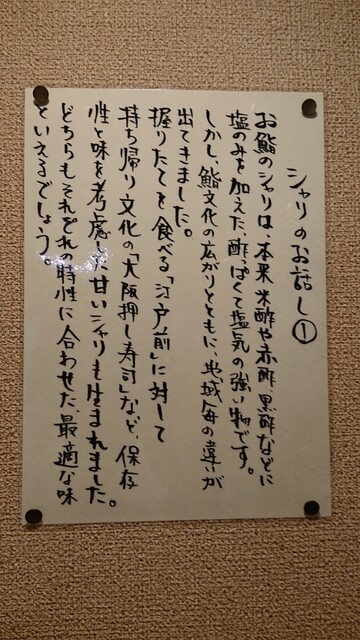 シャリのお話し①
お鮨のシャリは、本来 米酢や赤酢、黒酢などに
塩のみを加えた、酢っぱくて塩気の強い物です。
しかし、鮨文化の広がりとともに、地域毎の違いが
出てきました。
握りたてを食べる「江戸前」に対して
持ち帰り文化の「大阪押し寿司」など、保存
性と味を考慮した甘いシャリも生まれました。
どちらもそれぞれの特性に合わせた、最適な味
といえるでしょう。